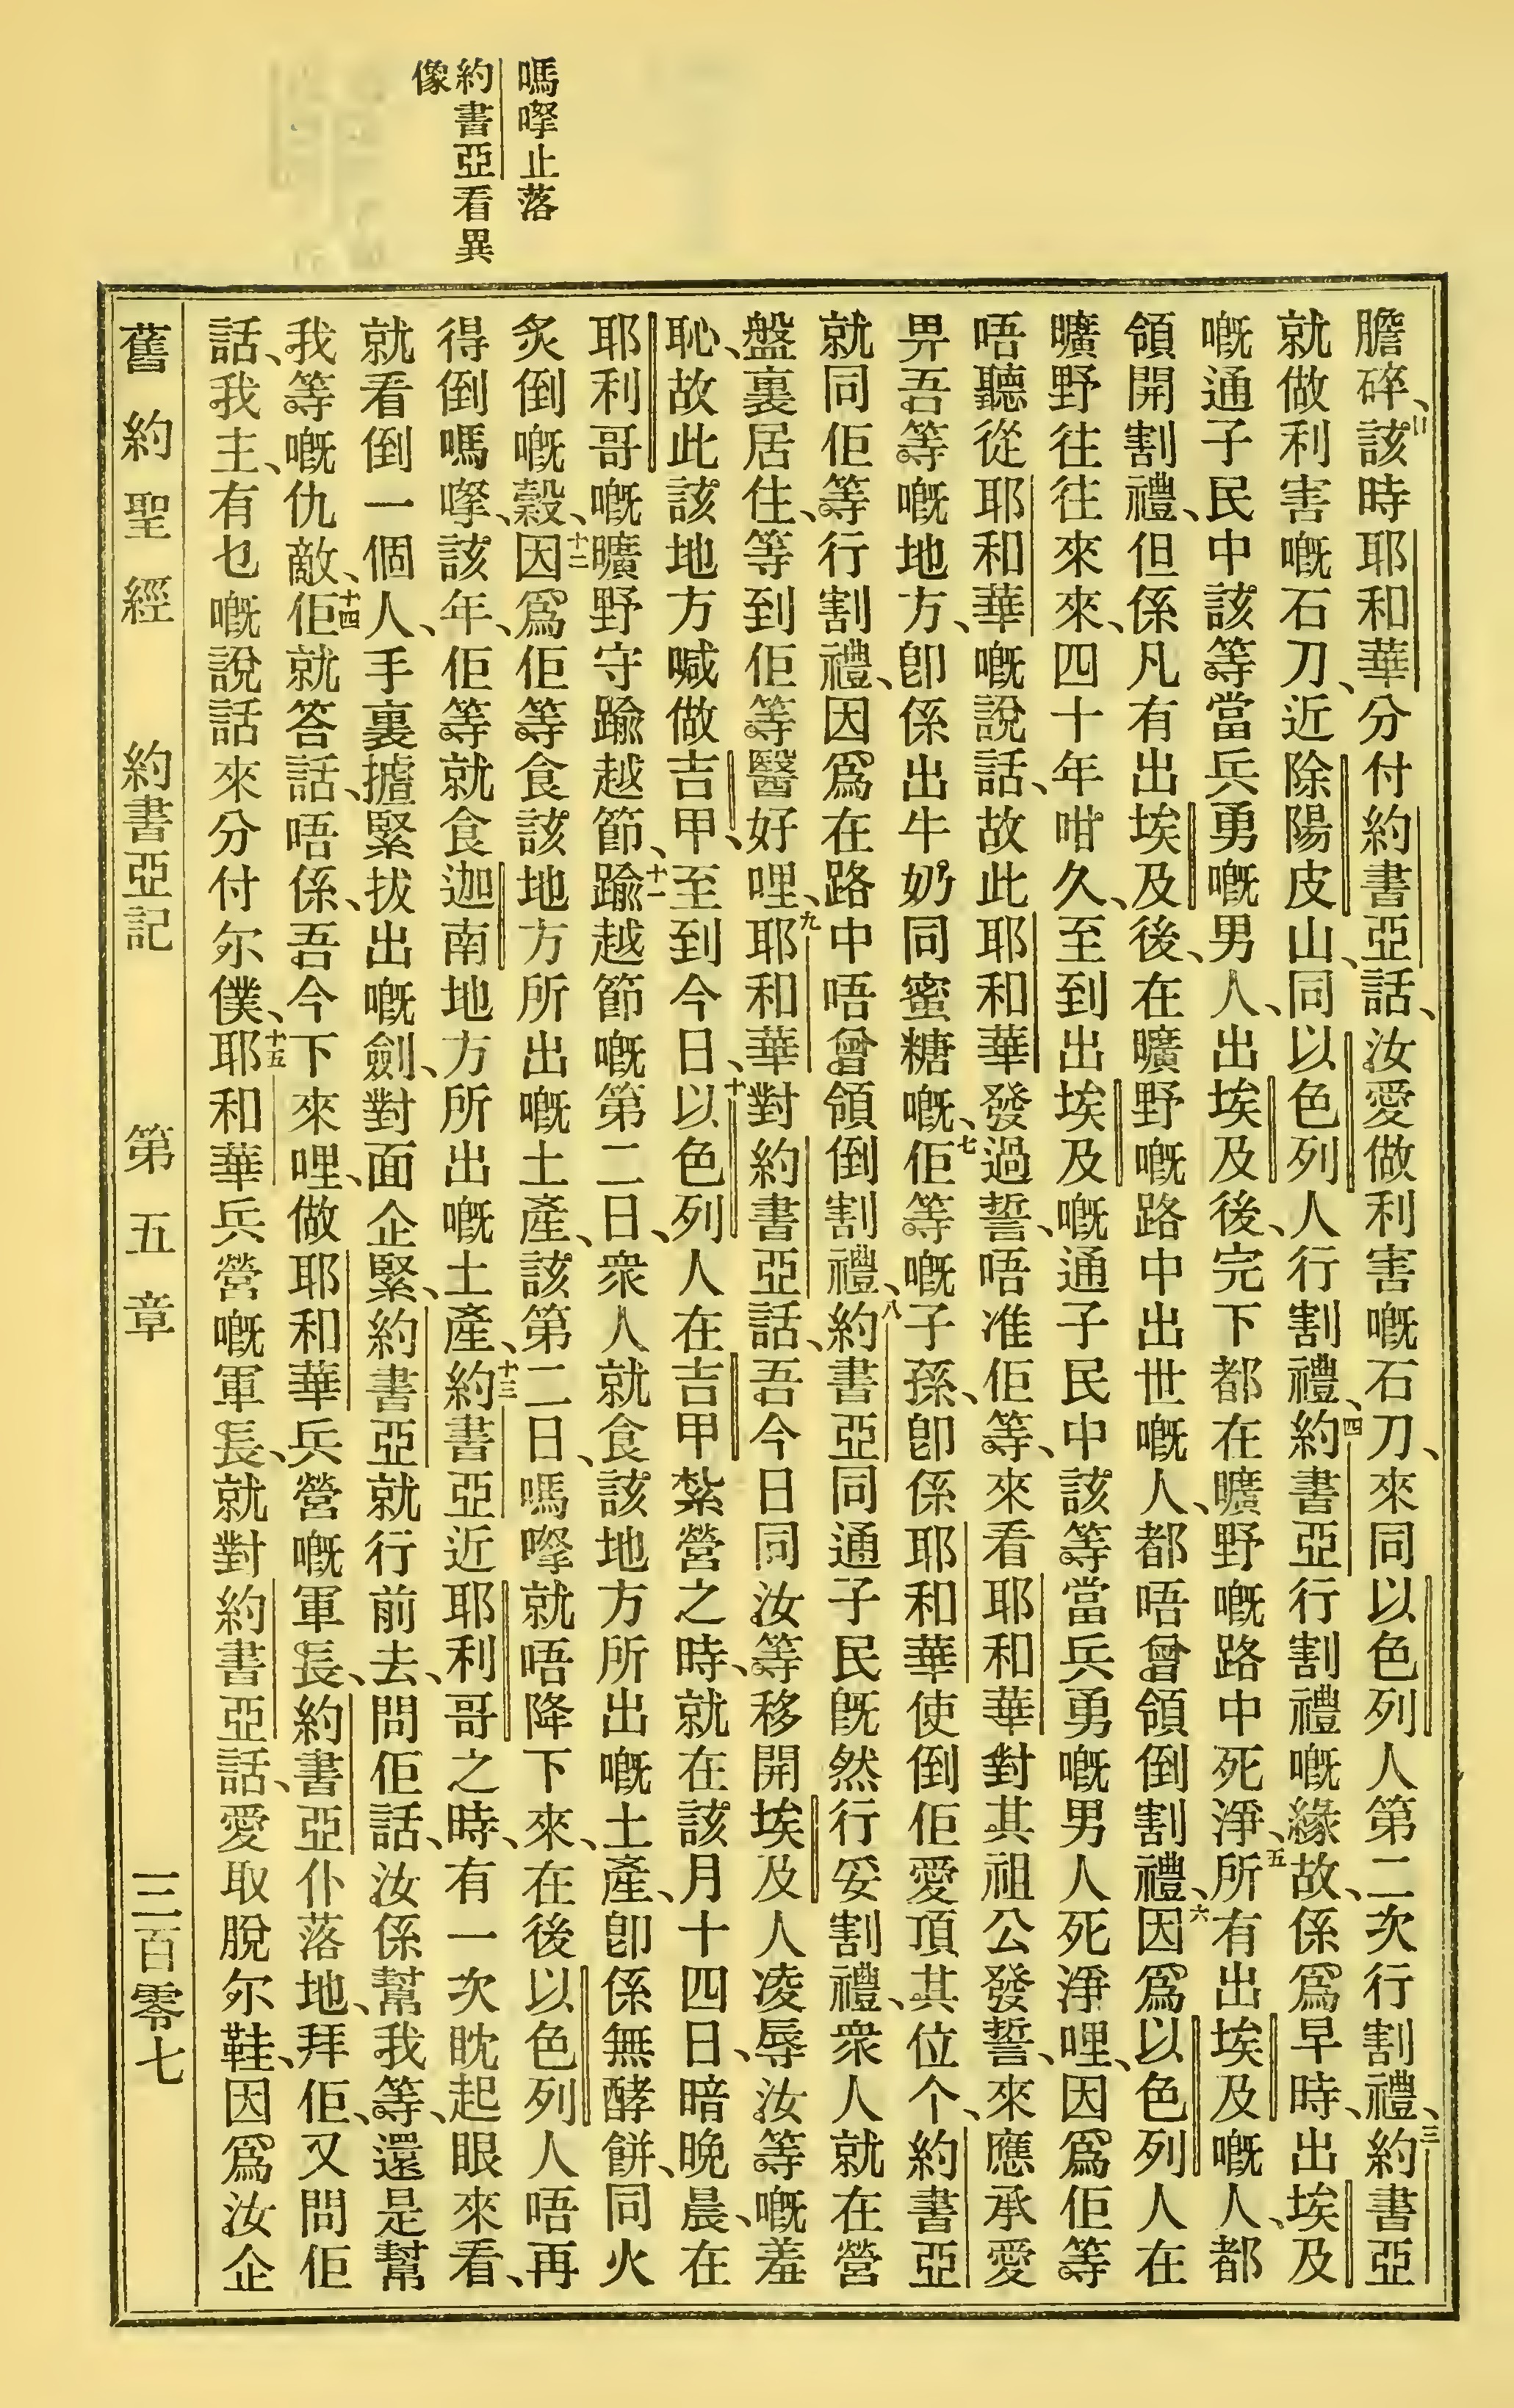 嗎嗱止落
約書亞看異
像
膽碎、二該時耶和華分付約書亞話、汝愛做利害嘅石刀、來同以色列人第二次行割禮、三約書亞
就做利害嘅石刀、近除陽皮山、同以色列人行割禮、四約書亞行割禮嘅緣故、係爲早時、出埃及
嘅通子民中該等當兵勇嘅男人、出埃及後、完下都在曠野嘅路中死淨、五所有出埃及嘅人、都
領開割禮、但係凡有出埃及後、在曠野嘅路中出世嘅人、都唔曾領倒割禮、六因爲以色列人在
曠野往往來來、四十年咁久、至到出埃及嘅通子民中該等當兵勇嘅男人死淨哩、因爲佢等
唔聽從耶和華嘅說話、故此耶和華發過誓、唔准佢等、來看耶和華對其祖公發誓、來應承愛
畀吾等嘅地方、卽係出牛奶同蜜糖嘅、七佢等嘅子孫、卽係耶和華使倒佢愛頂其位个、約書亞
就同佢等行割禮、因爲在路中唔曾領倒割禮、八約書亞同通子民旣然行妥割禮、衆人就在營
盤裏居住、等到佢等醫好哩、九耶和華對約書亞話、吾今日同汝等移開埃及人凌辱汝等嘅羞
恥、故此該地方喊做吉甲、至到今日、十以色列人在吉甲紮營之時、就在該月十四日、暗晚晨、在
耶利哥嘅曠野守踰越節、十一踰越節嘅第二日、衆人就食該地方所出嘅土產、卽係無酵餅、同火
炙倒嘅穀、十二因爲佢等食該地方所出嘅土產、該第二日、嗎嗱就唔降下來、在後以色列人唔再
得倒嗎嗱、該年、佢等就食迦南地方所出嘅土產、十三約書亞近耶利哥之時、有一次眈起眼來看、
就看倒一個人、手裏㨿緊拔出嘅劍、對面企緊、約書亞就行前去、問佢話、汝係幫我等、還是幫
我等嘅仇敵、十四佢就答話、唔係、吾今下來哩、做耶和華兵營嘅軍長、約書亞仆落地、拜佢、又問佢
話、我主、有乜嘅說話來分付尔僕、十五耶和華兵營嘅軍長、就對約書亞話、愛取脫尔鞋、因爲汝企
舊約聖經 約書亞記 第五章 三百零七